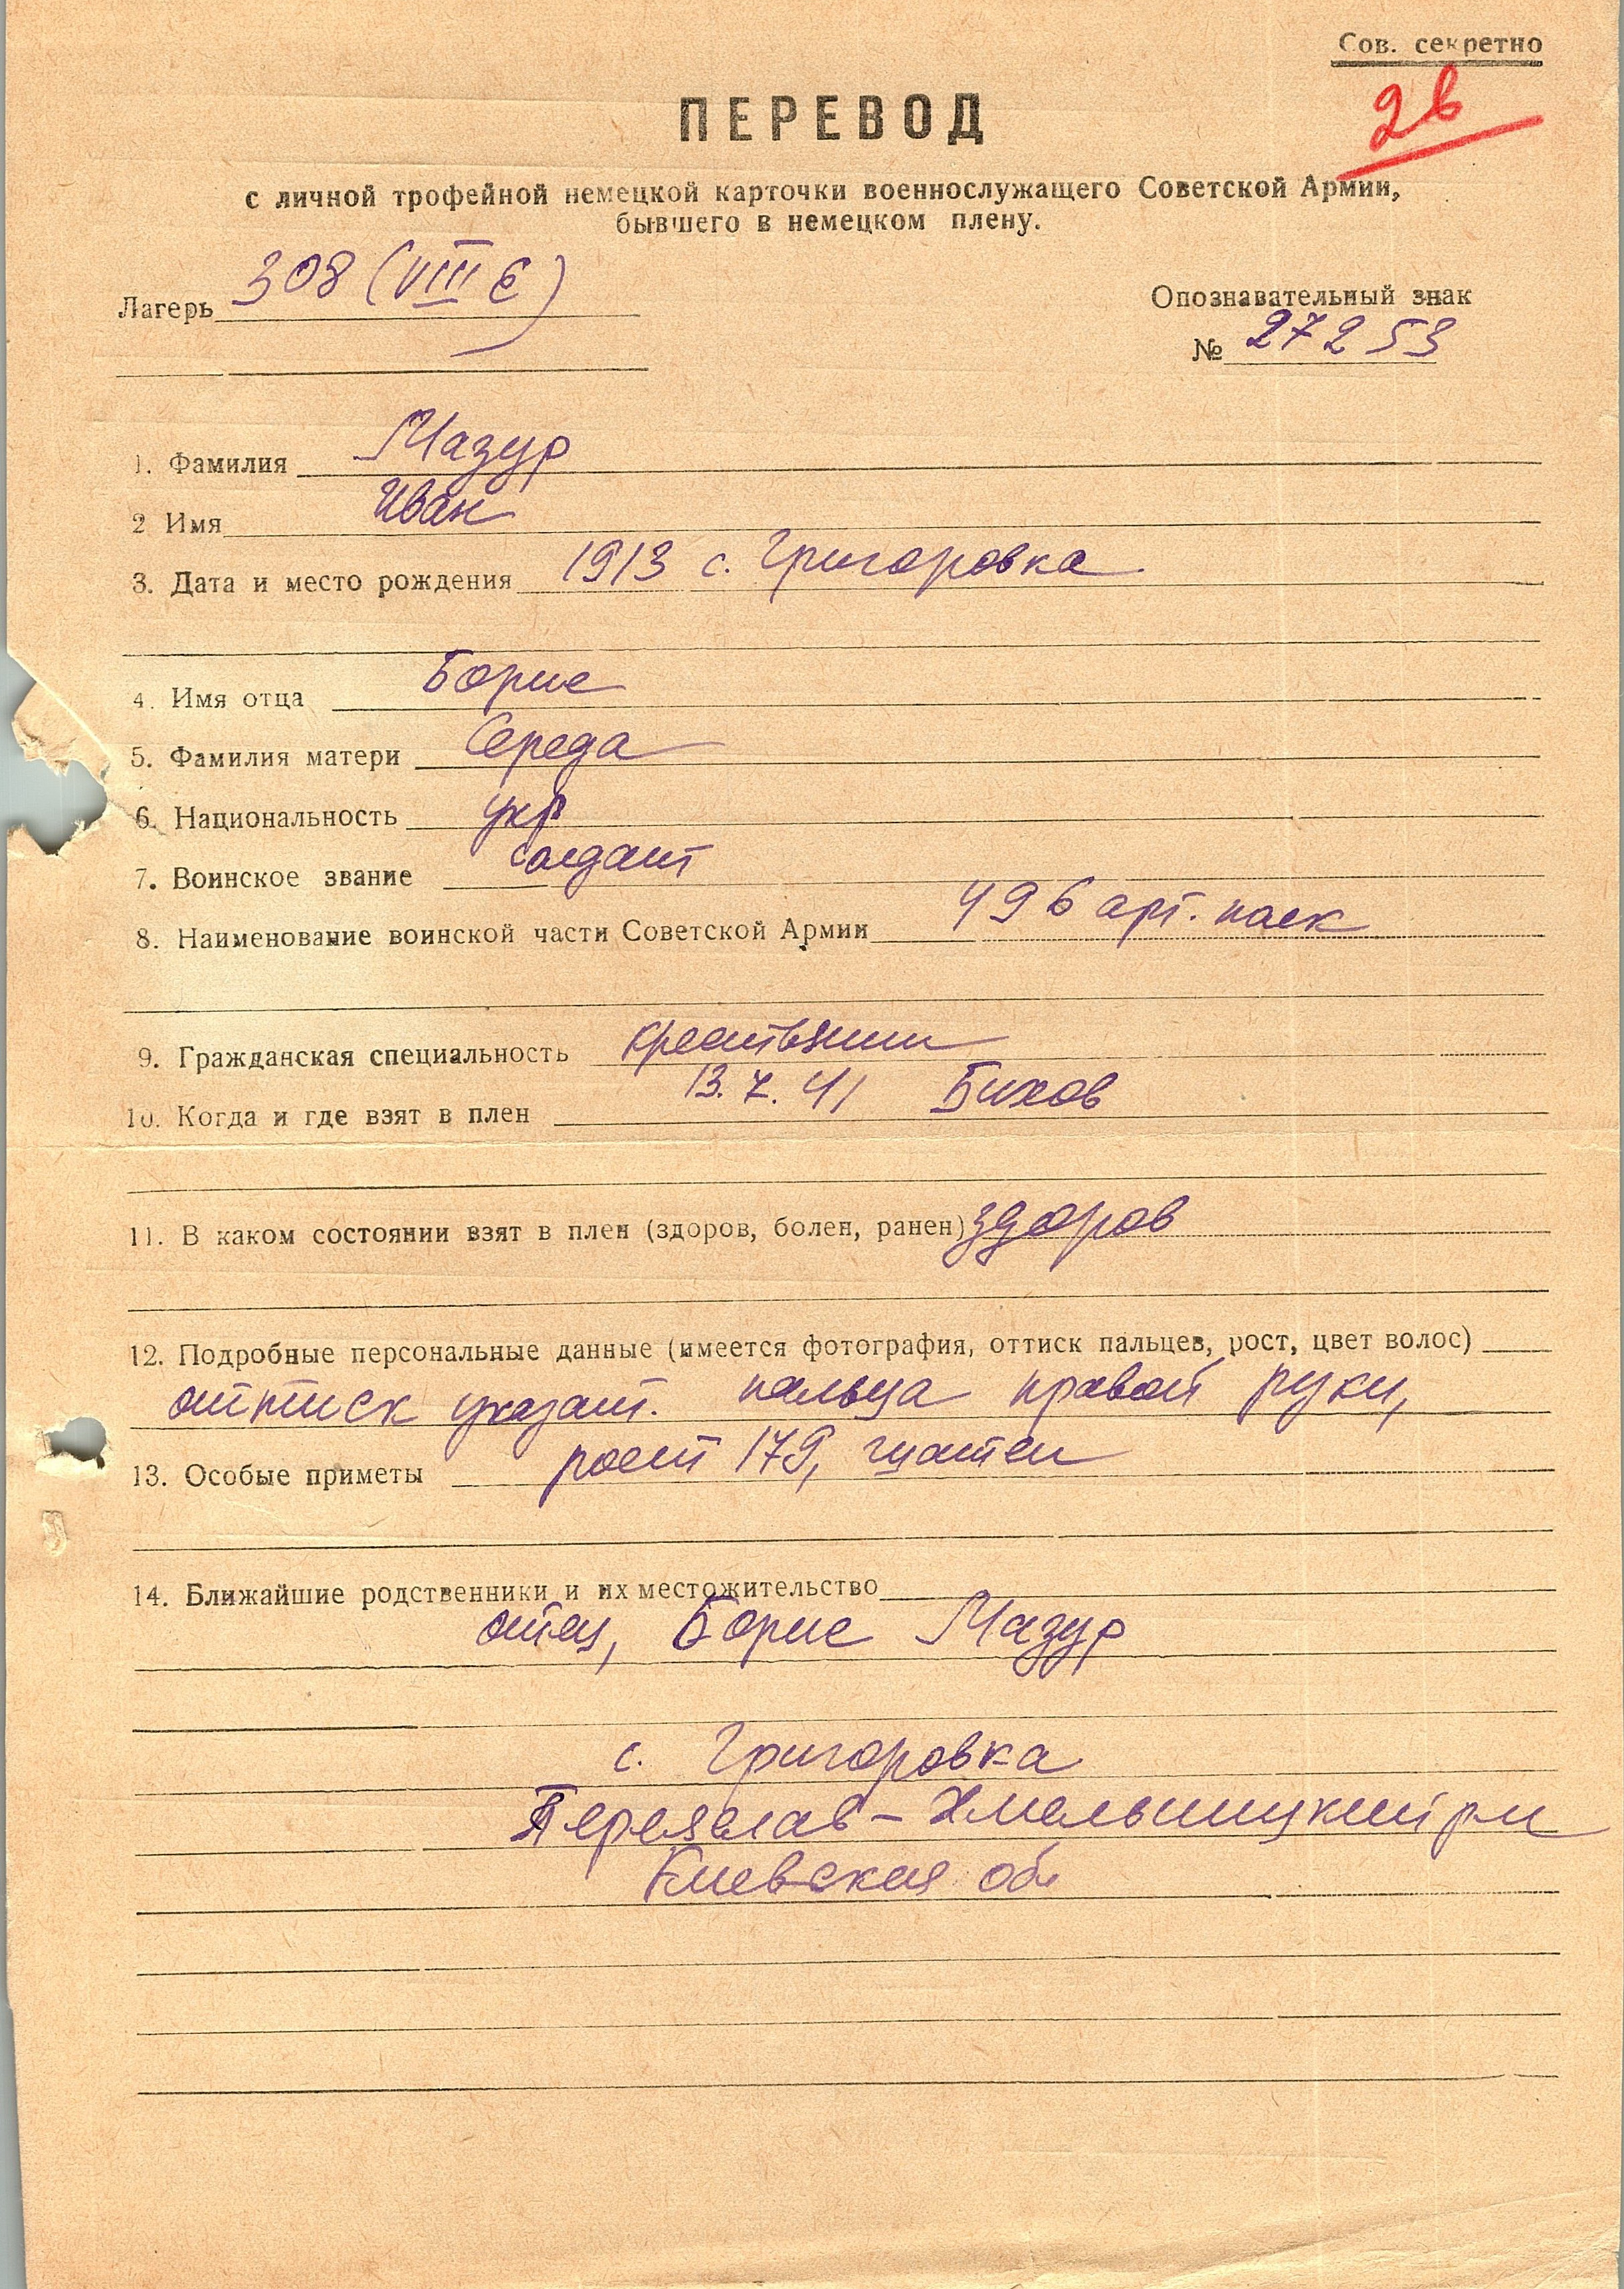 Сов. секретно
26
ПЕРЕВОД
с личной трофейной немецкой карточки военнослужащего Советской Армии,
бывшего в немецком плену.
Лагерь 308 (VIII E)
Опознавательный знак
№ 27253
1. Фамилия Мазур
2 Имя Иван
3. Дата и место рождения 1913 с. Григоровка
4. Имя отца Борис
5. Фамилия матери Середа
6. Национальность укр
7. Воинское звание солдат
8. Наименование воинской части Советской Армии 496 арт. полк
9. Гражданская специальность крестьянин
10. Когда и где взят в плен 13.7.41 Бихов
11. В каком состоянии взят в плен (здоров, болен, ранен) здоров
12. Подробные персональные данные (имеется фотография, оттиск пальцев, рост, цвет волос)
оттиск указат. пальца правой руки,
13. Особые приметы рост 179, шатен
14. Ближайшие родственники и их местожительство
отец, Борис Мазур
с. Григоровка
Переяслав-Хмельницкий р-н
Киевская об.